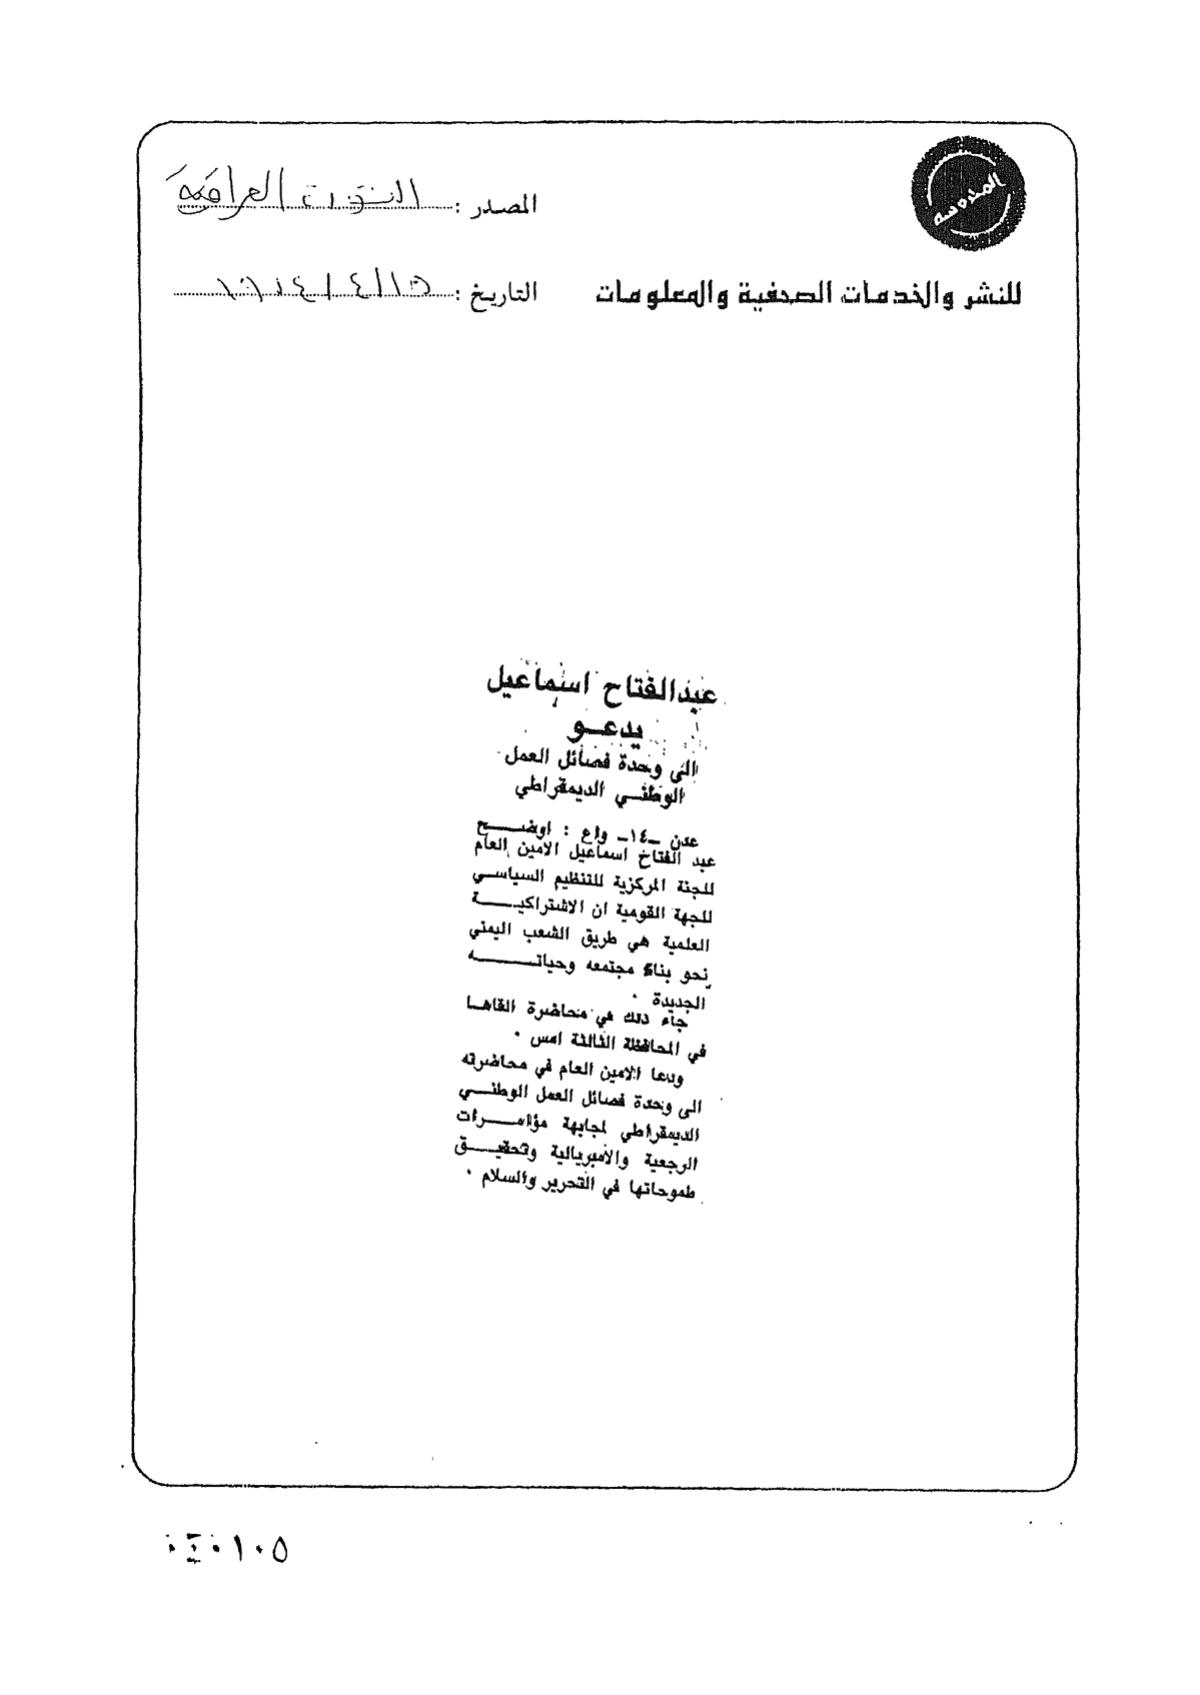 المحروسه
المصدر : الثورة العراقية
للنشر والخدمات الصحفية والمعلومات
التاريخ : ١٥/٤/
عبدالفتاح اسماعيل
يدعـو
الى وحدة فصائل العمل
الوطنـي الديمقراطي
عدن -١٤- واع : اوضـح
عبد الفتاح اسماعيل الامين العام
للجنة المركزية للتنظيم السياسي
للجهة القومية ان الاشتراكيـة
العلمية هي طريق الشعب اليمني
نحو بناء مجتمعه وحياتـه
الجديدة .
جاء ذلك في محاضرة القاهـا
في المحافظة الثالثة امس .
ودعا الامين العام في محاضرته
الى وحدة فصائل العمل الوطنـي
الديمقراطي لمجابهة مؤامـرات
الرجعية والامبريالية وتحقيـق
طموحاتها في التحرير والسلام .